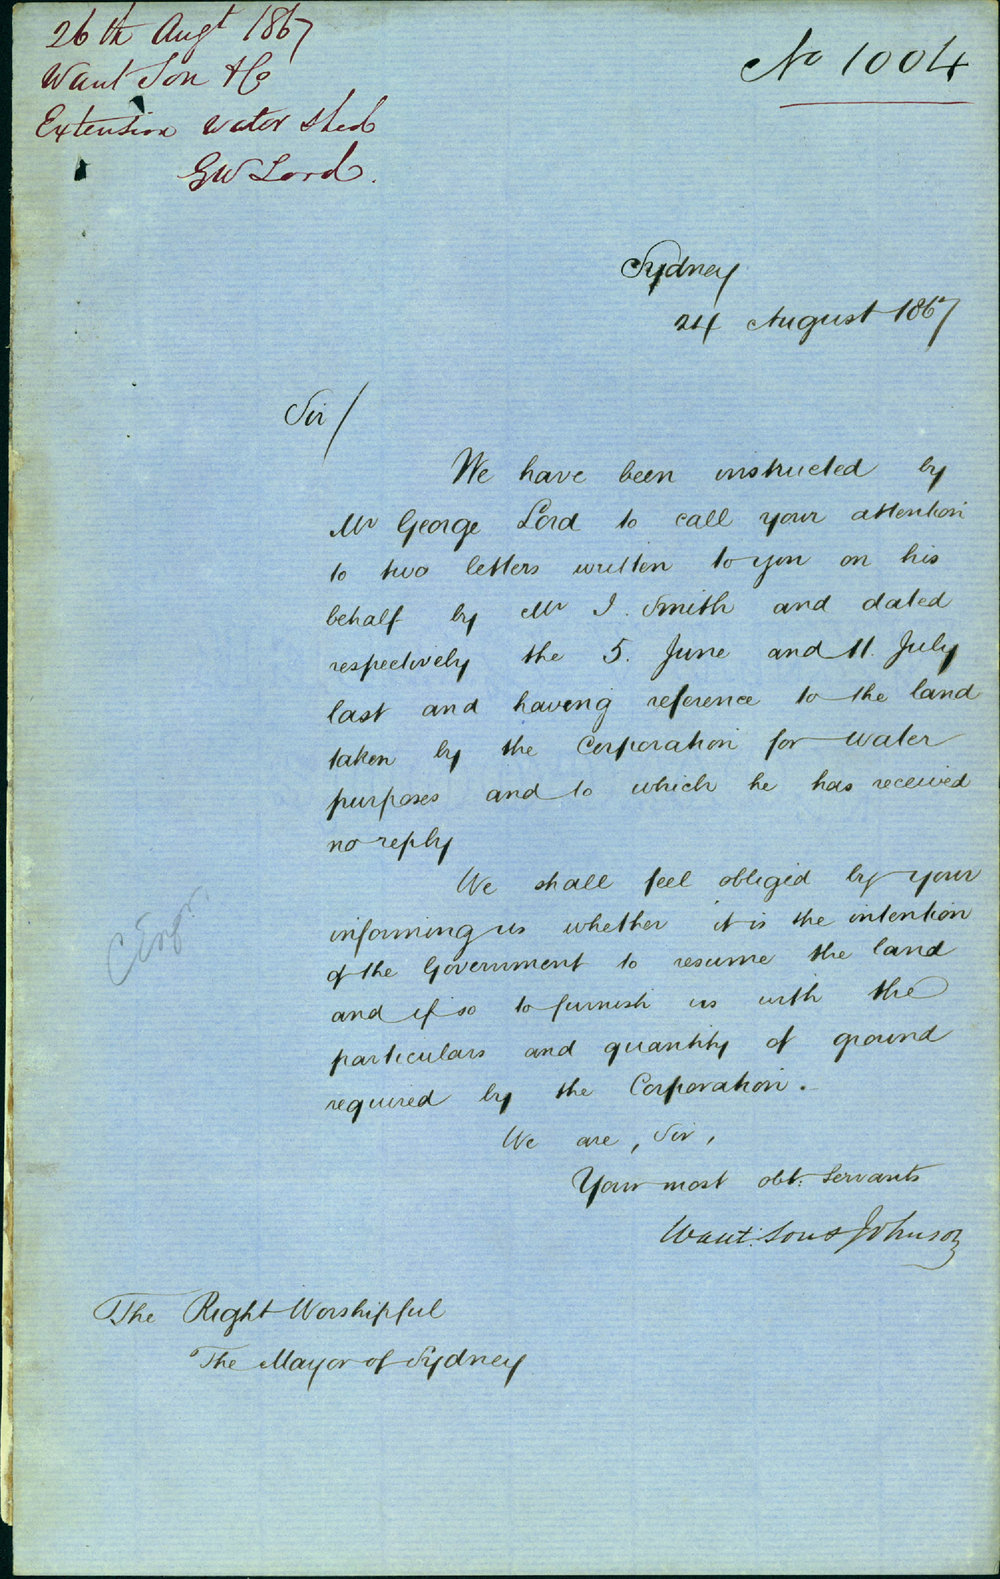 26th Augt 1867
Want Son & Co
Extension Water Shed
GW Lord.
No 1004
Sydney
24 August 1867
Sir/
We have been instructed by
Mr George Lord to call your attention
to two letters written to you on his
behalf by Mr J. Smith and dated
respectively the 5. June and 11. July
last and having reference to the land
taken by the Corporation for water
purposes and to which he has received
no reply
We shall feel obliged by your
informing us whether it is the intention
of the Government to resume the land
and if so to furnish us with the
particulars and quantity of ground
required by the Corporation.
We are, Sir,
Your most obt. Servants
Want Son & Johnson
The Right Worshipful
The Mayor of Sydney
C Engr.